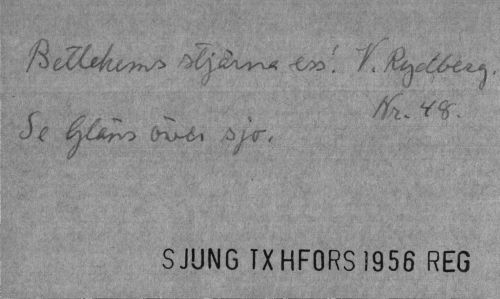 Betlehems stjärna ess! V. Rydberg.
Nr. 48.
Se Gläns över sjö.
SJUNG TXHFORS 1956 REG